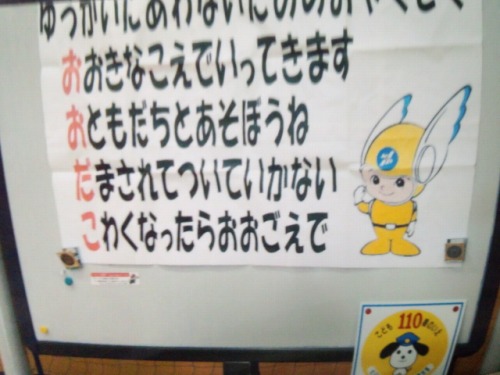 ゆうかいにあわないための おやくそく
おおきなこえでいってきます
おともだちとあそぼうね
だまされてついていかない
こわくなったらおおごえで
こども110番